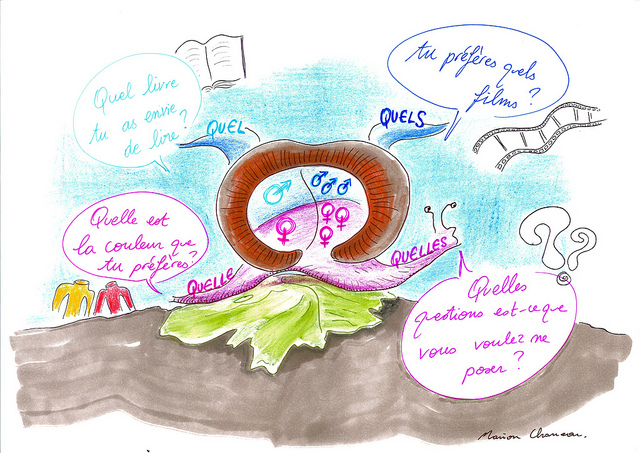 Quel livre
tu as envie
de lire ?
tu préfères quels
films ?
QUEL
QUELS
Quelle est
la couleur que
tu préfères ?
QUELLE
QUELLES
Quelles
questions est-ce que
vous voulez me
poser ?
Marion